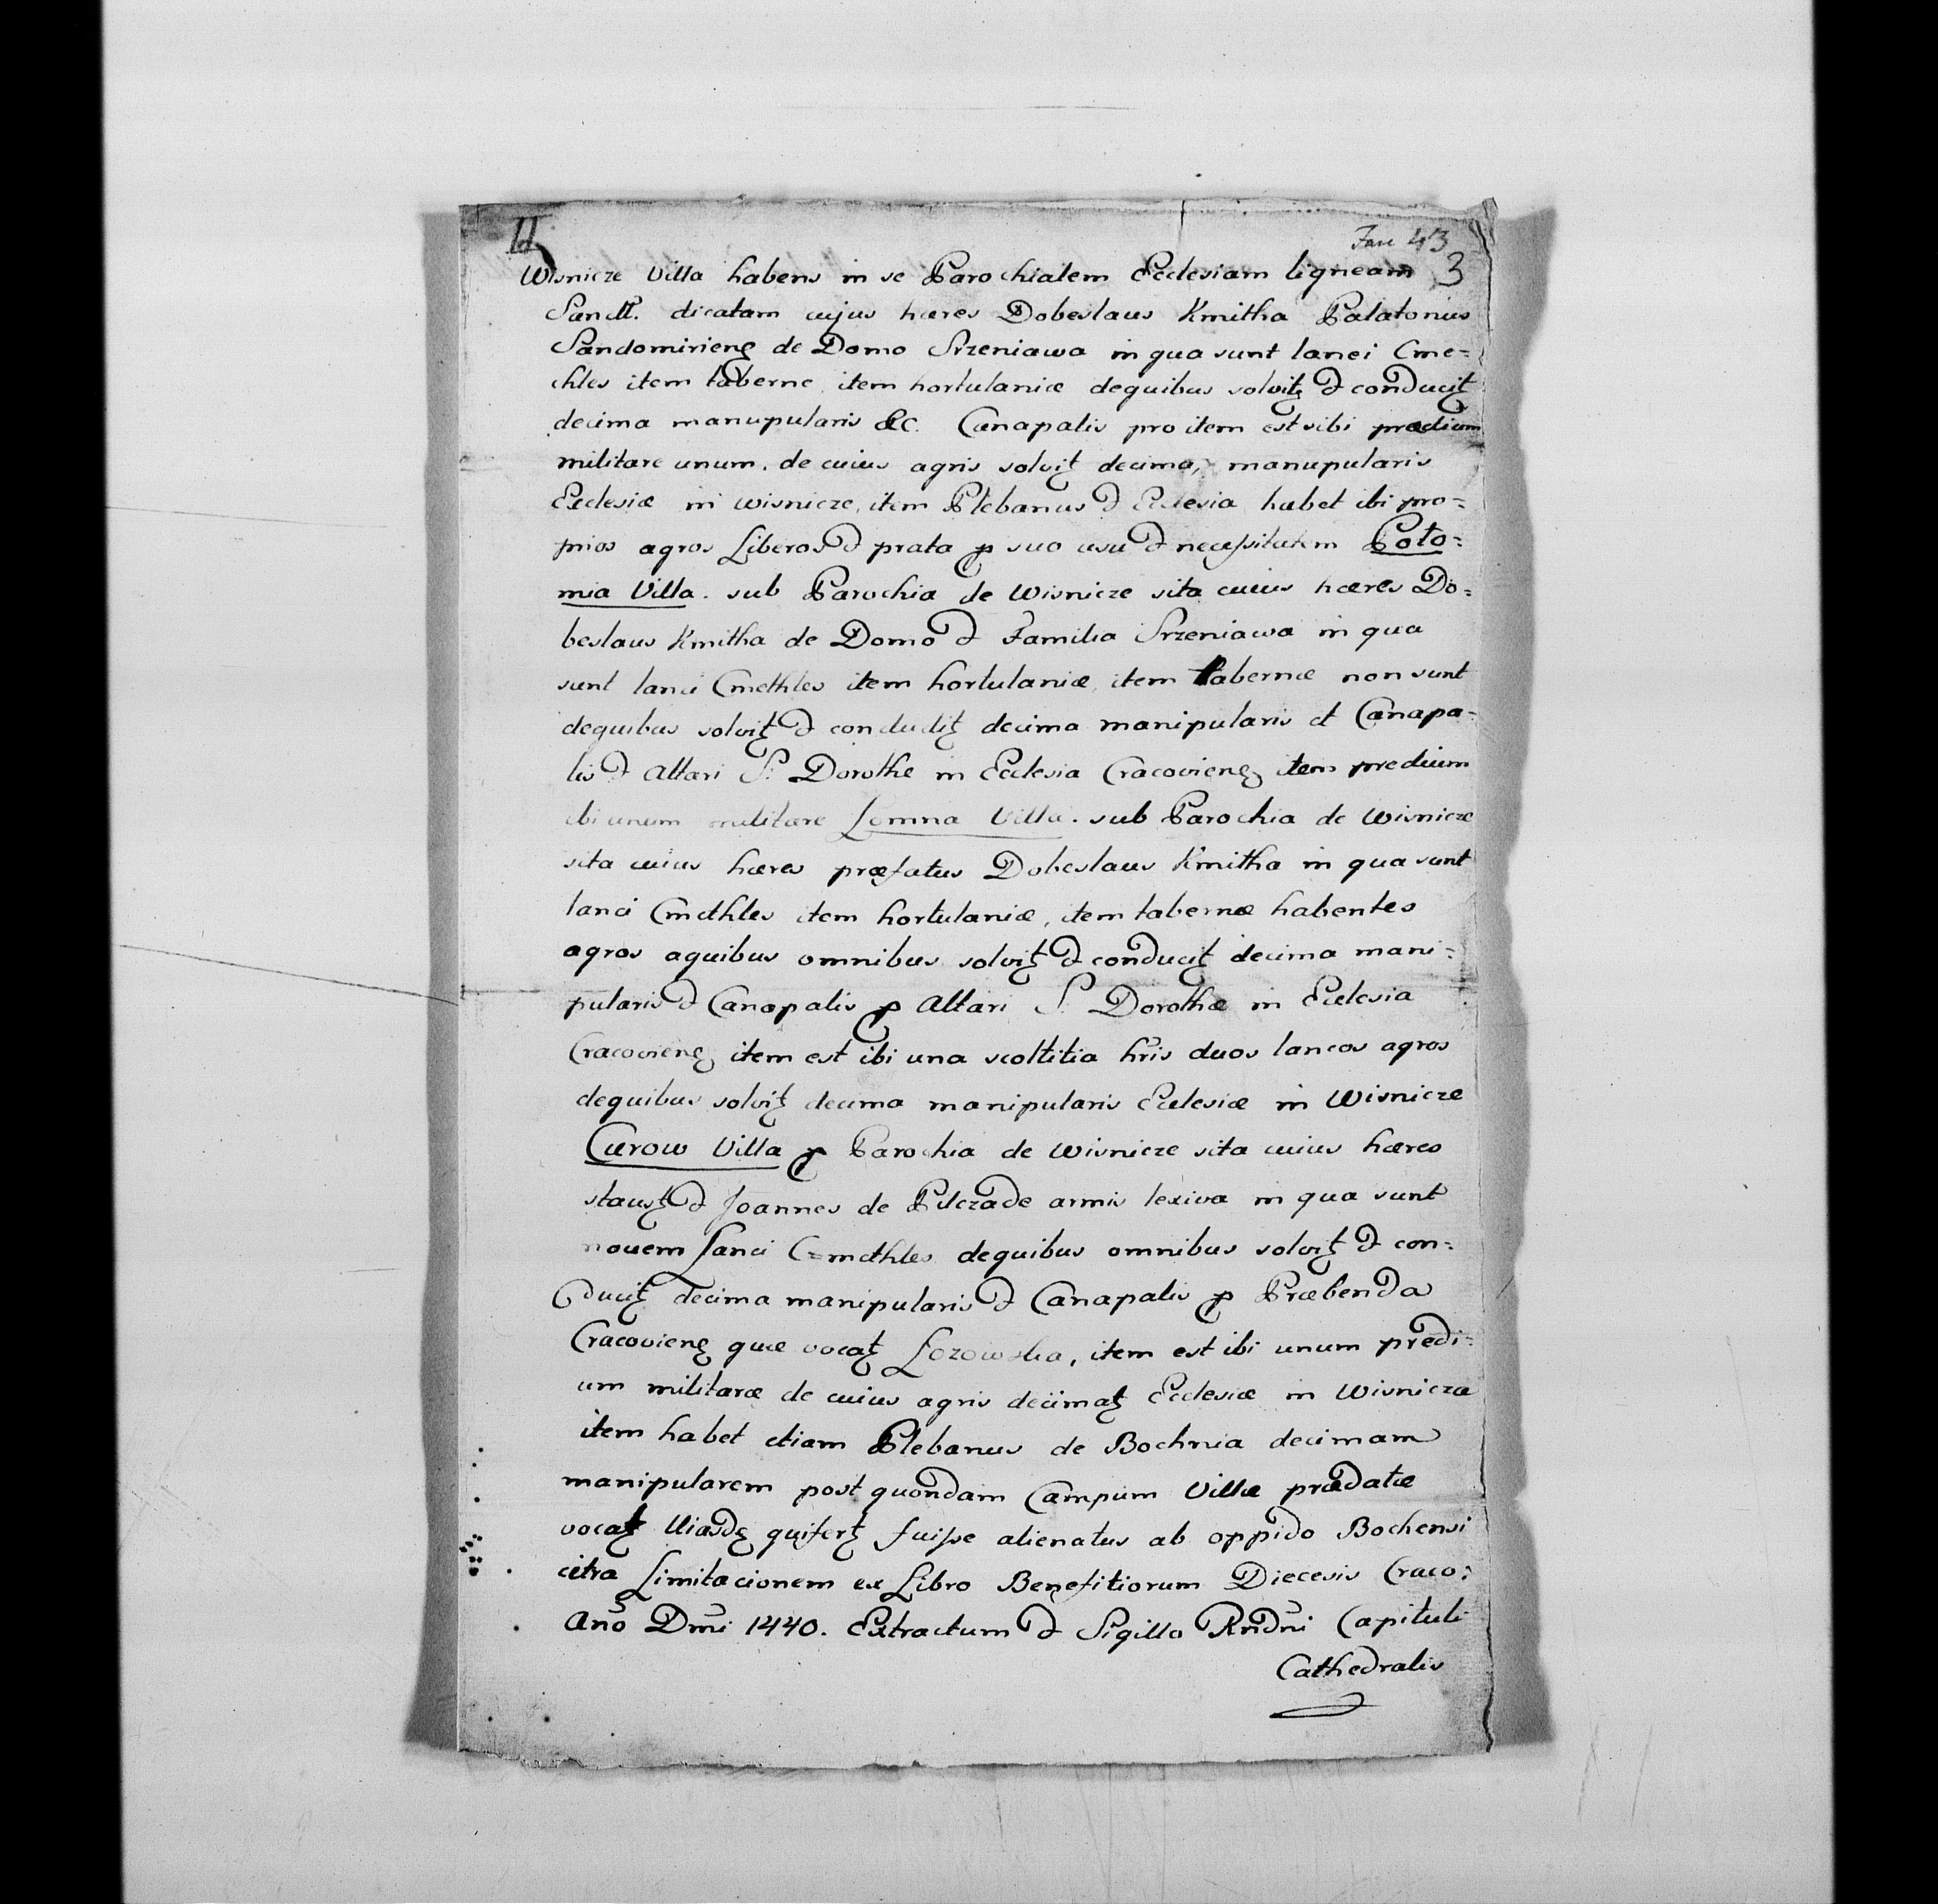 Fasc 43
3
Wisnicze Villa habens in se Parochialem Ecclesiam ligneam
Sanctt. dicatam cujus hæres Dobeslaus Kmitha Palatonius
Sandomirieng de Domo Srzeniawa in qua sunt lanei Cme=
thles item taberne, item hortulaniæ dequibus solvitꝫ & conducitꝫ
decima manupularis &c. Canapalis pro item est sibi prædium
militare unum. de cuius agris solvitꝫ decima, manupularis
Ecclesiæ in Wisnicze, item Plebanus & Ecclesia habet ibi pro=
prios agros Liberos & prata p suo usu & necessitatem Poto=
mia Villa. sub Parochia de Wisnicze sita cuius hæres Do=
beslaus Kmitha de Domo & Familia Srzeniawa in qua
sunt lanei Cmethles item hortulaniæ, item tabernæ non sunt
dequibus solvitꝫ & conducitꝫ decima manipularis et Canapa=
lis & Altari S. Dorothe in Ecclesia Cracovieng item predium
ibi unum militare Lomna Villa. sub Parochia de Wisnicze
sita cuius hæres præfatus Dobeslaus Kmitha in qua sunt
lanei Cmethles item hortulaniæ, item tabernæ habentes
agros aquibus omnibus solvitꝫ & conducitꝫ decima mani=
pularis & Canapalis p Altari S. Dorothæ in Ecclesia
Cracovieng item est ibi una scoltitia hris duos laneos agros
dequibus solvitꝫ decima manipularis Ecclesiæ in Wisnicze
Curow Villa p Parochia de Wisnicze sita cuius hæres
stausꝫ & Joannes de Pilczade armis lexiva in qua sunt
novem Lanei C=methles dequibus omnibus solvitꝫ & con=
ducitꝫ decima manipularis & Canapalis p Præbenda
Cracovieng quæ vocatꝫ Lozowska, item est ibi unum predi=
um militaræ de cuius agris decimatꝫ Ecclesiæ in Wisnicza
item habet etiam Plebanus de Bochnia decimam
manipularem post quondam Campum Villæ prædatæ
vocatꝫ quifertꝫ fuisse alienatus ab oppido Bochensi
citra Limitacionem ex Libro Benefitiorum Diecesis Craco:
Año Dm̄i 1440. Extractum & Sigillo Rn̄dni Capituli
Cathedralis